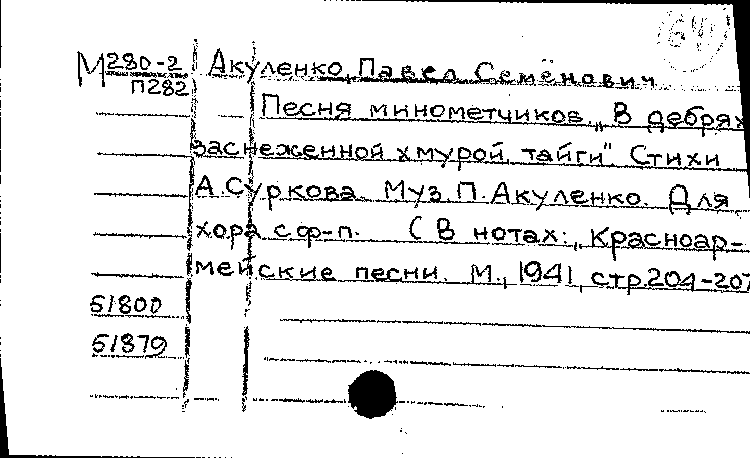 64
М 280-2 Акуленко, Павел Семёнович
П282
Песня минометчиков. „В дебрях
заснеженной хмурой тайги". Стихи
А. Суркова. Муз. П. Акуленко. Для
хора с ф-п. (В нотах: „Красноар-
мейские песни. М., 1941, стр. 204-207
51800
51879